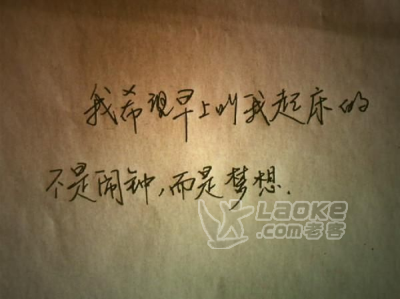 我希望早上叫我起床的
不是闹钟,而是梦想.
Laoke
.com老客